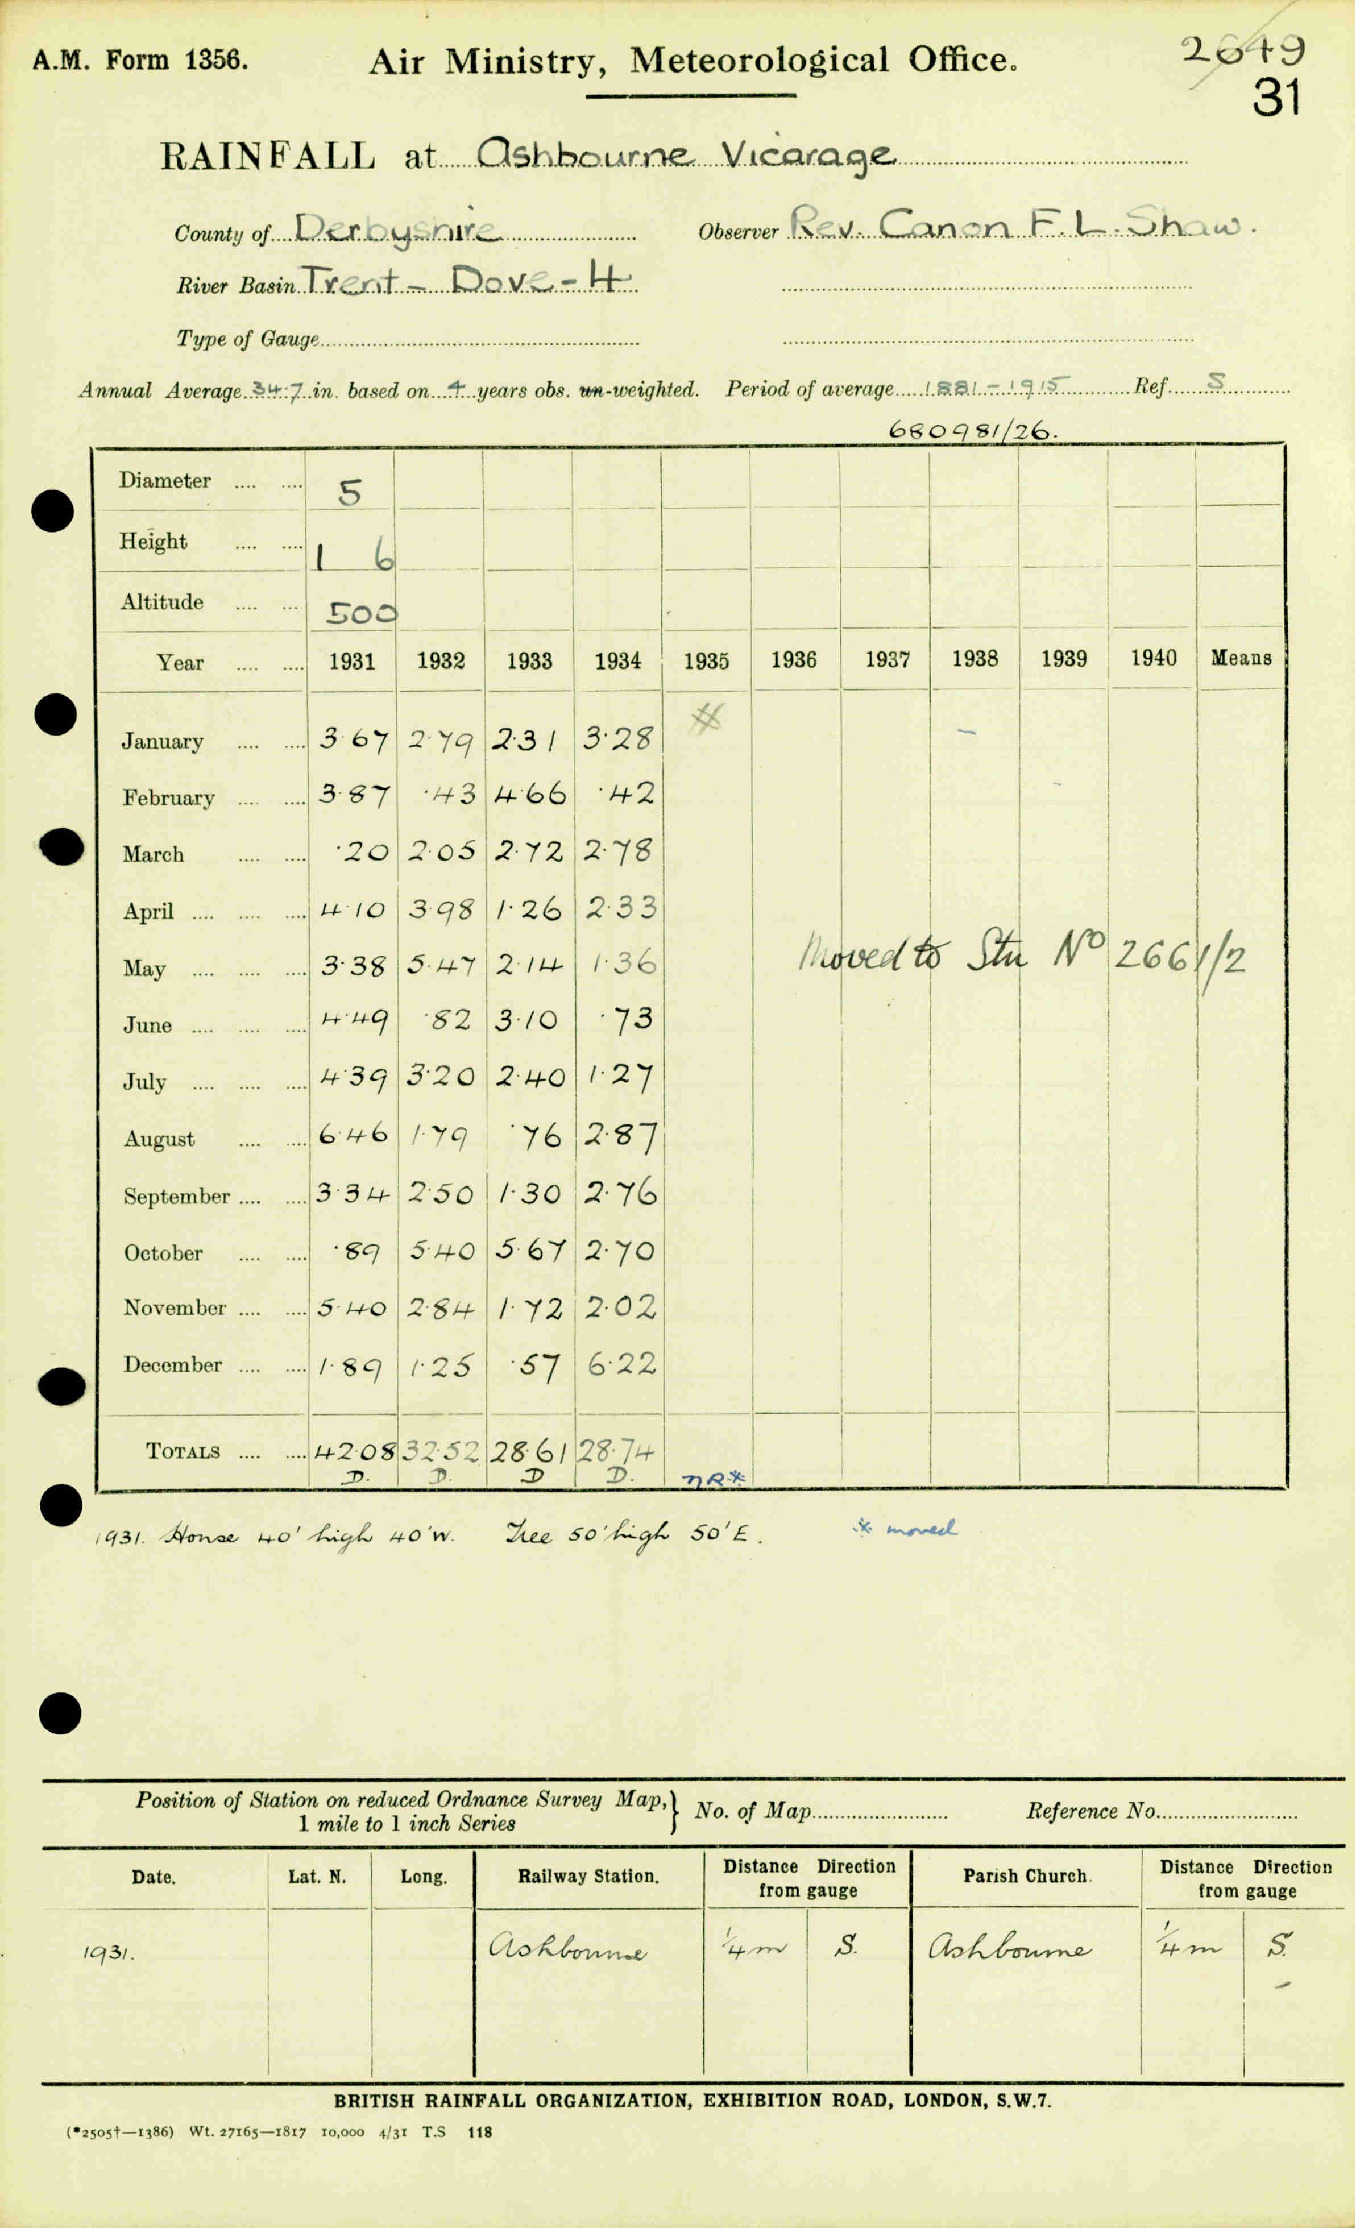 A.M. Form 1356. Air Ministry, Meteorological Office. 2649
31
RAINFALL at Ashbourne Vicarage
County of Derbyshire Observer Rev. Canon F. L. Shaw.
River Basin Trent - Dove - 4
Type of Gauge
Annual Average 34.7 in. based on 4 years obs. un-weighted. Period of average 1881-1915 Ref. S
680981/26.
Diameter 5
Height 1 6
Altitude 500
Year 1931 1932 1933 1934 1935 1936 1937 1938 1939 1940 Means
January 3.67 2.79 2.31 3.28 *
February 3.87 .43 4.66 .42
March .20 2.05 2.72 2.78
April 4.10 3.98 1.26 2.33
May 3.38 5.47 2.14 1.36 Moved to Stn No 2661/2
June 4.49 .82 3.10 .73
July 4.39 3.20 2.40 1.27
August 6.46 1.79 .76 2.87
September 3.34 2.50 1.30 2.76
October .89 5.40 5.67 2.70
November 5.40 2.84 1.72 2.02
December 1.89 1.25 .57 6.22
TOTALS 42.08 32.52 28.61 28.74
D. D. D D. NR*
1931. House 40' high 40' W. Tree 50' high 50' E. * moved
Position of Station on reduced Ordnance Survey Map, } No. of Map Reference No.
1 mile to 1 inch Series
Date. Lat. N. Long. Railway Station. Distance Direction from gauge Parish Church. Distance Direction from gauge
1931. Ashbourne 1/4 m S. Ashbourne 1/4 m S.
BRITISH RAINFALL ORGANIZATION, EXHIBITION ROAD, LONDON, S.W.7.
(*2505†—1386) Wt. 27165—1817 10,000 4/31 T.S 118